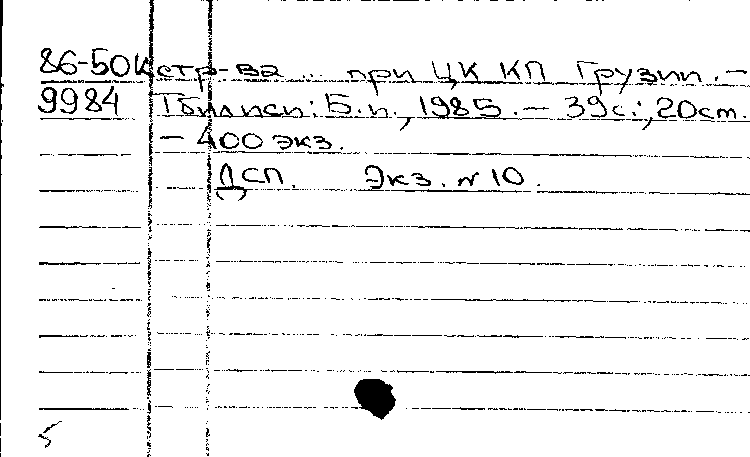 86-50к стр-ва .. при ЦК КП Грузии. –
9984 Тбилиси: Б.и., 1985. – 39с.; 20см.
– 400 экз.
ДСП. Экз. № 10.
5